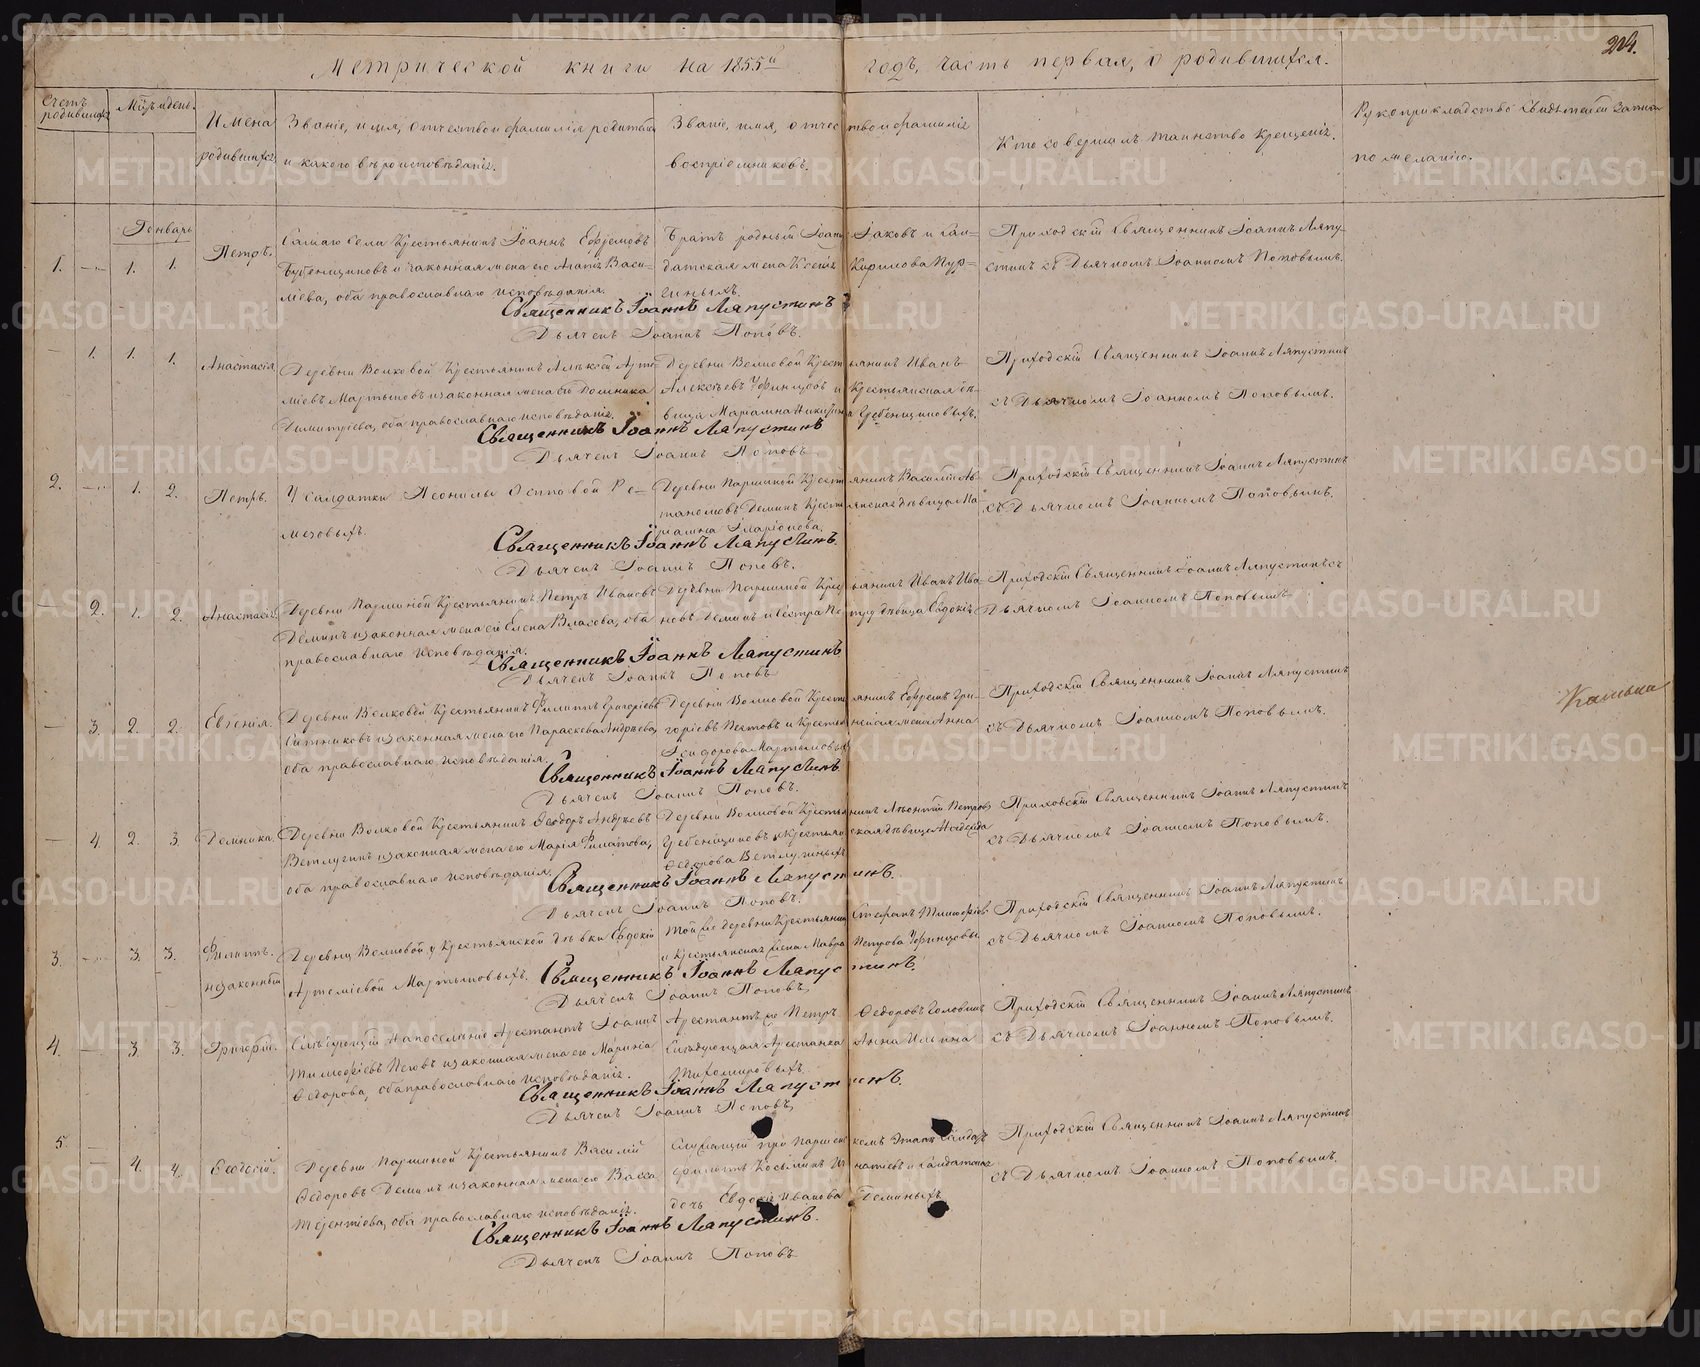 224.
Метрической книги на 1855й годъ, часть первая, о родившихся.
Счетъ родившихся
Мѣсяцъ и день.
Имена родившихся
Званіе, имя, отчество и фамилія родителей
и какого вѣроисповѣданія.
Званіе, имя, отчество и фамилія
воспріемниковъ.
Кто совершалъ таинство крещенія.
Рукоприкладство свидѣтелей записи
по желанію.
Генварь
1. 1. 1.
Петръ.
Самаго села крестьянинъ Іоаннъ Ефремовъ
и законная жена его Агапія Васи-
лiева, оба православнаго исповѣданія.
Братъ родный Іоанна Іаковъ и сол-
датская жена Ксенія Кирилова Пур-
гиныхъ.
Приходскій Священникъ Іоаннъ Ляпу-
стинъ съ Дьячкомъ Іоанномъ Поповымъ.
Священникъ Іоаннъ Ляпустинъ
Дьячекъ Іоаннъ Поповъ.
1. 1. 1.
Анастасія
Деревни Волковой крестьянинъ Алексій Арте-
міевъ Мартыновъ и законная жена его Домника
Димитріева, оба православнаго исповѣданія.
Деревни Волковой крестьянинъ Иванъ
Алексѣевъ Уфинцовъ и крестьянская дѣ-
вица Маріамна Никитина Гребенщиковыхъ.
Приходскій Священникъ Іоаннъ Ляпустинъ
съ Дьячкомъ Іоанномъ Поповымъ.
Священникъ Іоаннъ Ляпустинъ
Дьячекъ Іоаннъ Поповъ
2. 1. 2.
Петръ.
У солдатки Леониллы Осиповой Ре-
мезовыхъ.
Деревни Паршиной крестьянинъ Василій
Деминъ крестьянская дѣвица Ма-
ріамна Иларіонова.
Приходскій Священникъ Іоаннъ Ляпустинъ
съ Дьячкомъ Іоанномъ Поповымъ.
Священникъ Іоаннъ Ляпустинъ.
Дьячекъ Іоаннъ Поповъ.
2. 1. 2.
Анастасія.
Деревни Паршиной крестьянинъ Петръ Ивановъ
Деминъ и законная жена его Елена Власова, оба
православнаго исповѣданія.
Деревни Паршиной крестьянинъ Иванъ Ива-
новъ Деминъ и сестра Петру дѣвица Евдокія
Приходскій Священникъ Іоаннъ Ляпустинъ съ
Дьячкомъ Іоанномъ Поповымъ
Священникъ Іоаннъ Ляпустинъ
Дьячекъ Іоаннъ Поповъ
3. 2. 2.
Евгенія.
Деревни Волковой крестьянинъ Филиппъ Григоріевъ
Ситниковъ и законная жена его Параскева Андреева,
оба православнаго исповѣданія.
Деревни Волковой крестьянинъ Ефремъ Гри-
горіевъ Пестовъ и крестьянская жена Анна
Исидорова Мартыновыхъ
Приходскій Священникъ Іоаннъ Ляпустинъ
съ Дьячкомъ Іоанномъ Поповымъ.
Священникъ Іоаннъ Ляпустинъ.
Дьячекъ Іоаннъ Поповъ.
4. 2. 3.
Домника.
Деревни Волковой крестьянинъ Ѳеодоръ Андреевъ
Ветлугинъ и законная жена его Марія Филатова,
оба православнаго исповѣданія.
Деревни Волковой крестьянинъ Леонтій Петровъ
Гребенщиковъ и крестьянская дѣвица Надежда
Ѳедорова Ветлугиныхъ
Приходскій Священникъ Іоаннъ Ляпустинъ
съ Дьячкомъ Іоанномъ Поповымъ.
Священникъ Іоаннъ Ляпустинъ.
Дьячекъ Іоаннъ Поповъ.
3. 3. 3.
Филиппъ.
незаконный
Деревни Волковой у крестьянской дѣвки Евдокіи
Артеміевой Мартыновыхъ.
Той же деревни крестьянинъ Стефанъ Тимофіевъ
и крестьянская жена Мавра Петрова Уфинцовы
Приходскій Священникъ Іоаннъ Ляпустинъ
съ Дьячкомъ Іоанномъ Поповымъ.
Священникъ Іоаннъ Ляпустинъ.
Дьячекъ Іоаннъ Поповъ,
4. 3. 3.
Григорій.
Слѣдующій на поселеніе Арестантъ Іоаннъ
Тимофіевъ и законная жена его Марина
Ѳедорова, оба православнаго исповѣданія.
Арестантъ же Петръ Ѳедоровъ Головинъ
Слѣдующая Арестанка Анна Ильина
Тихомировыхъ
Приходскій Священникъ Іоаннъ Ляпустинъ
съ Дьячкомъ Іоанномъ Поповымъ.
Священникъ Іоаннъ Ляпустинъ.
Дьячекъ Іоаннъ Поповъ,
5. 4. 4.
Ѳеодосій.
Деревни Паршиной крестьянинъ Василій
Ѳедоровъ Деминъ и законная жена его Васса
Терентіева, оба православнаго исповѣданія.
Служащій при Паршинскомъ Этапѣ солдатъ
Филиппъ Козьминъ Игнатьевъ и солдатская
дочь Евдокія Иванова Деминыхъ
Приходскій Священникъ Іоаннъ Ляпустинъ
съ Дьячкомъ Іоанномъ Поповымъ.
Священникъ Іоаннъ Ляпустинъ.
Дьячекъ Іоаннъ Поповъ
METRIKI.GASO-URAL.RU